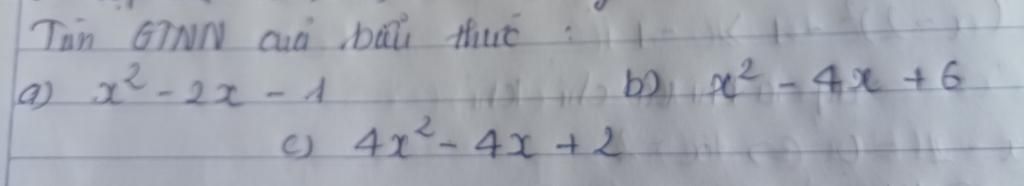 Tìm GTNN của biểu thức :
a) x² - 2x - 1 b) x² - 4x + 6
c) 4x² - 4x + 2